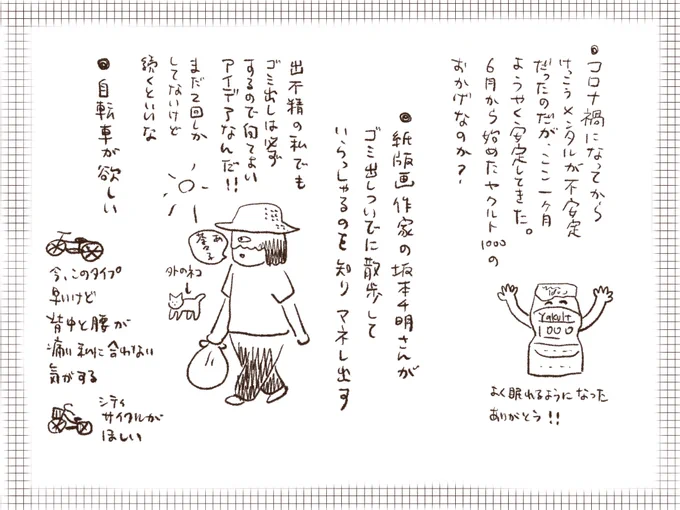 ◎コロナ禍になってから
けっこうメンタルが不安定
だったのだが、ここ一ヶ月
ようやく安定してきた。
6月から始めたヤクルト1000の
おかげなのか?
Yakult
1000
よく眠れるようになった
ありがとう!!
◎紙版画作家の坂本千明さんが
ゴミ出しついでに散歩して
いらっしゃるのを知りマネし出す
出不精の私でも
ゴミ出しは必ず
するので何てよい
アイデアなんだ!!
まだ2回しか
してないけど
続くといいな
あ
茶子
外のネコ
◎自転車が欲しい
今、このタイプ
早いけど
背中と腰が
痛い私に合わない
気がする
シティ
サイクルが
ほしい